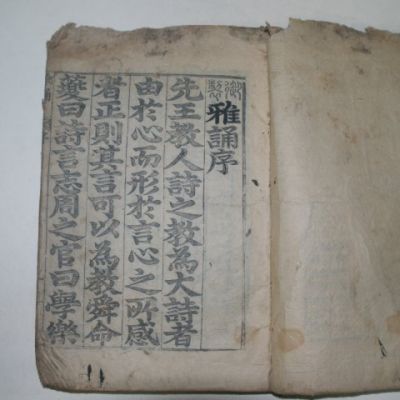 御製雅誦序
先王敎人詩之敎為大詩者
由於心而形於言心之所感
者正則其言可以為敎舜命
夔曰詩言志周之官曰學樂